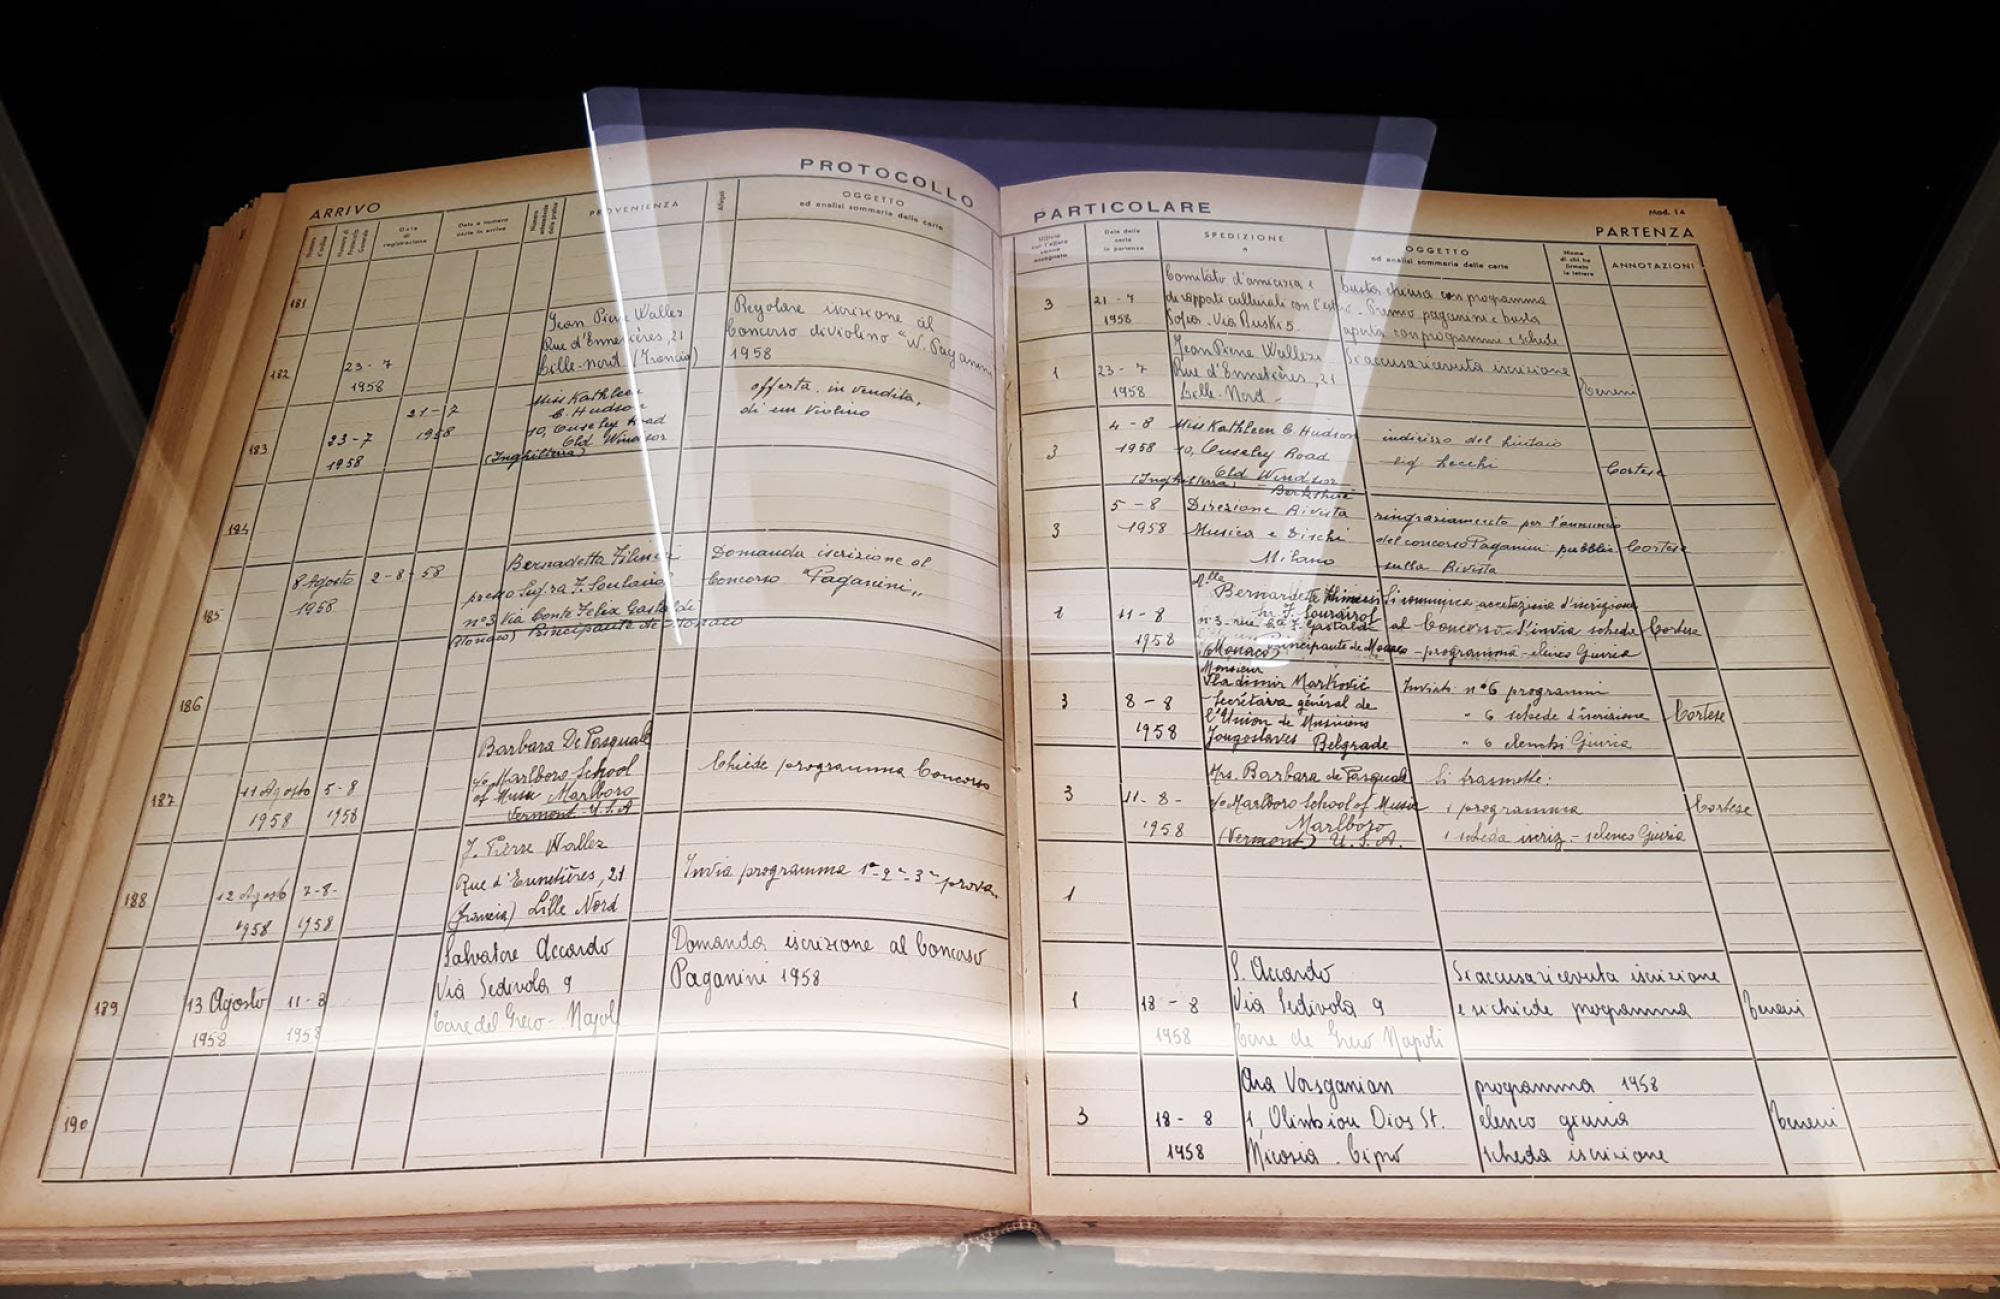 PROTOCOLLO
ARRIVO
Data di registrazione
Data e numero carte in arrivo
PROVENIENZA
Allegati
OGGETTO
ed analisi sommaria delle carte
181
182
23-7
1958
Jean Pierre Wallez
Rue d'Ennetières, 21
Lille-Nord (Francia)
Regolare iscrizione al
Concorso di violino "N. Paganini
1958
183
23-7
1958
21-7
1958
Miss Kathleen
C. Hudson
10, Ouseley Road
Old Windsor
(Inghilterra)
offerta in vendita,
di un violino
184
185
8 Agosto
1958
2-8-58
Bernadetta
presso Sig.ra J.
n°3 Via Conte Felix Gastaldi
(Monaco) Principante de Monaco
Domanda iscrizione al
Concorso "Paganini"
186
187
11 Agosto
1958
5-8
1958
Barbara De Pasquale
c/o Marlboro School
of Music Marlboro
Vermont-U.S.A
Chiede programma Concorso
188
12 Agosto
1958
7-8-
1958
J. Pierre Wallez
Rue d'Ennetières, 21
(Francia) Lille Nord
Invia programma 1ª-2ª-3ª prova
189
13 Agosto
1958
11-8
1958
Salvatore Accardo
Via Sedivola 9
Torre del Greco-Napoli
Domanda iscrizione al Concorso
Paganini 1958
190
PARTICOLARE
Mod. 14
PARTENZA
Data delle carte in partenza
SPEDIZIONE
a
OGGETTO
ed analisi sommaria delle carte
Nome di chi ha firmato le lettere
ANNOTAZIONI
3
21-7
1958
Comitato d'amicizia e
di rapporti culturali con l'estero
Sofia-Via Ruski 5-
busta chiusa con programma
Premio paganini e busta
aperta con programmi e schede
1
23-7
1958
Jean Pierre Wallez
Rue d'Ennetières, 21
Lille-Nord-
Si accusa ricevuta iscrizione
3
4-8
1958
Miss Kathleen C. Hudson
10, Ouseley Road
Old Windsor
(Inghilterra) - Berkshire
indirizzo del liutaio
sig. Lecchi
Cortese
3
5-8
1958
Direzione Rivista
Musica e Dischi
Milano
ringraziamento per l'annuncio
del concorso Paganini pubblic
sulla Rivista
Cortese
1
11-8
1958
M.lle
Bernardette
n°3-rue C.te F. Gastaldi
(Monaco) Principante de Monaco
Si comunica accettazione d'iscrizione
al Concorso. S'invia scheda
-programma-elenco Giuria
Cortese
3
8-8
1958
Monsieur
Vladimir Marković
Secrétaire général de
l'Union de Musiciens
Yougoslaves Belgrade
Inviati n°6 programmi
" 6 schede d'iscrizione
" 6 elenchi Giuria
Cortese
3
11-8-
1958
Mrs. Barbara de Pasquale
c/o Marlboro School of Music
Marlboro
(Vermont) U.S.A.
Si trasmette:
1 programma
1 scheda iscriz-elenco Giuria
Cortese
1
1
18-8
1958
S. Accardo
Via Sedivola 9
Torre de Greco Napoli
Si accusa ricevuta iscrizione
e si chiede programma
3
18-8
1958
Ara Vorsganian
1, Olimbiou Dios St.
Nicosia-Cipro
programma 1958
elenco giuria
scheda iscrizione